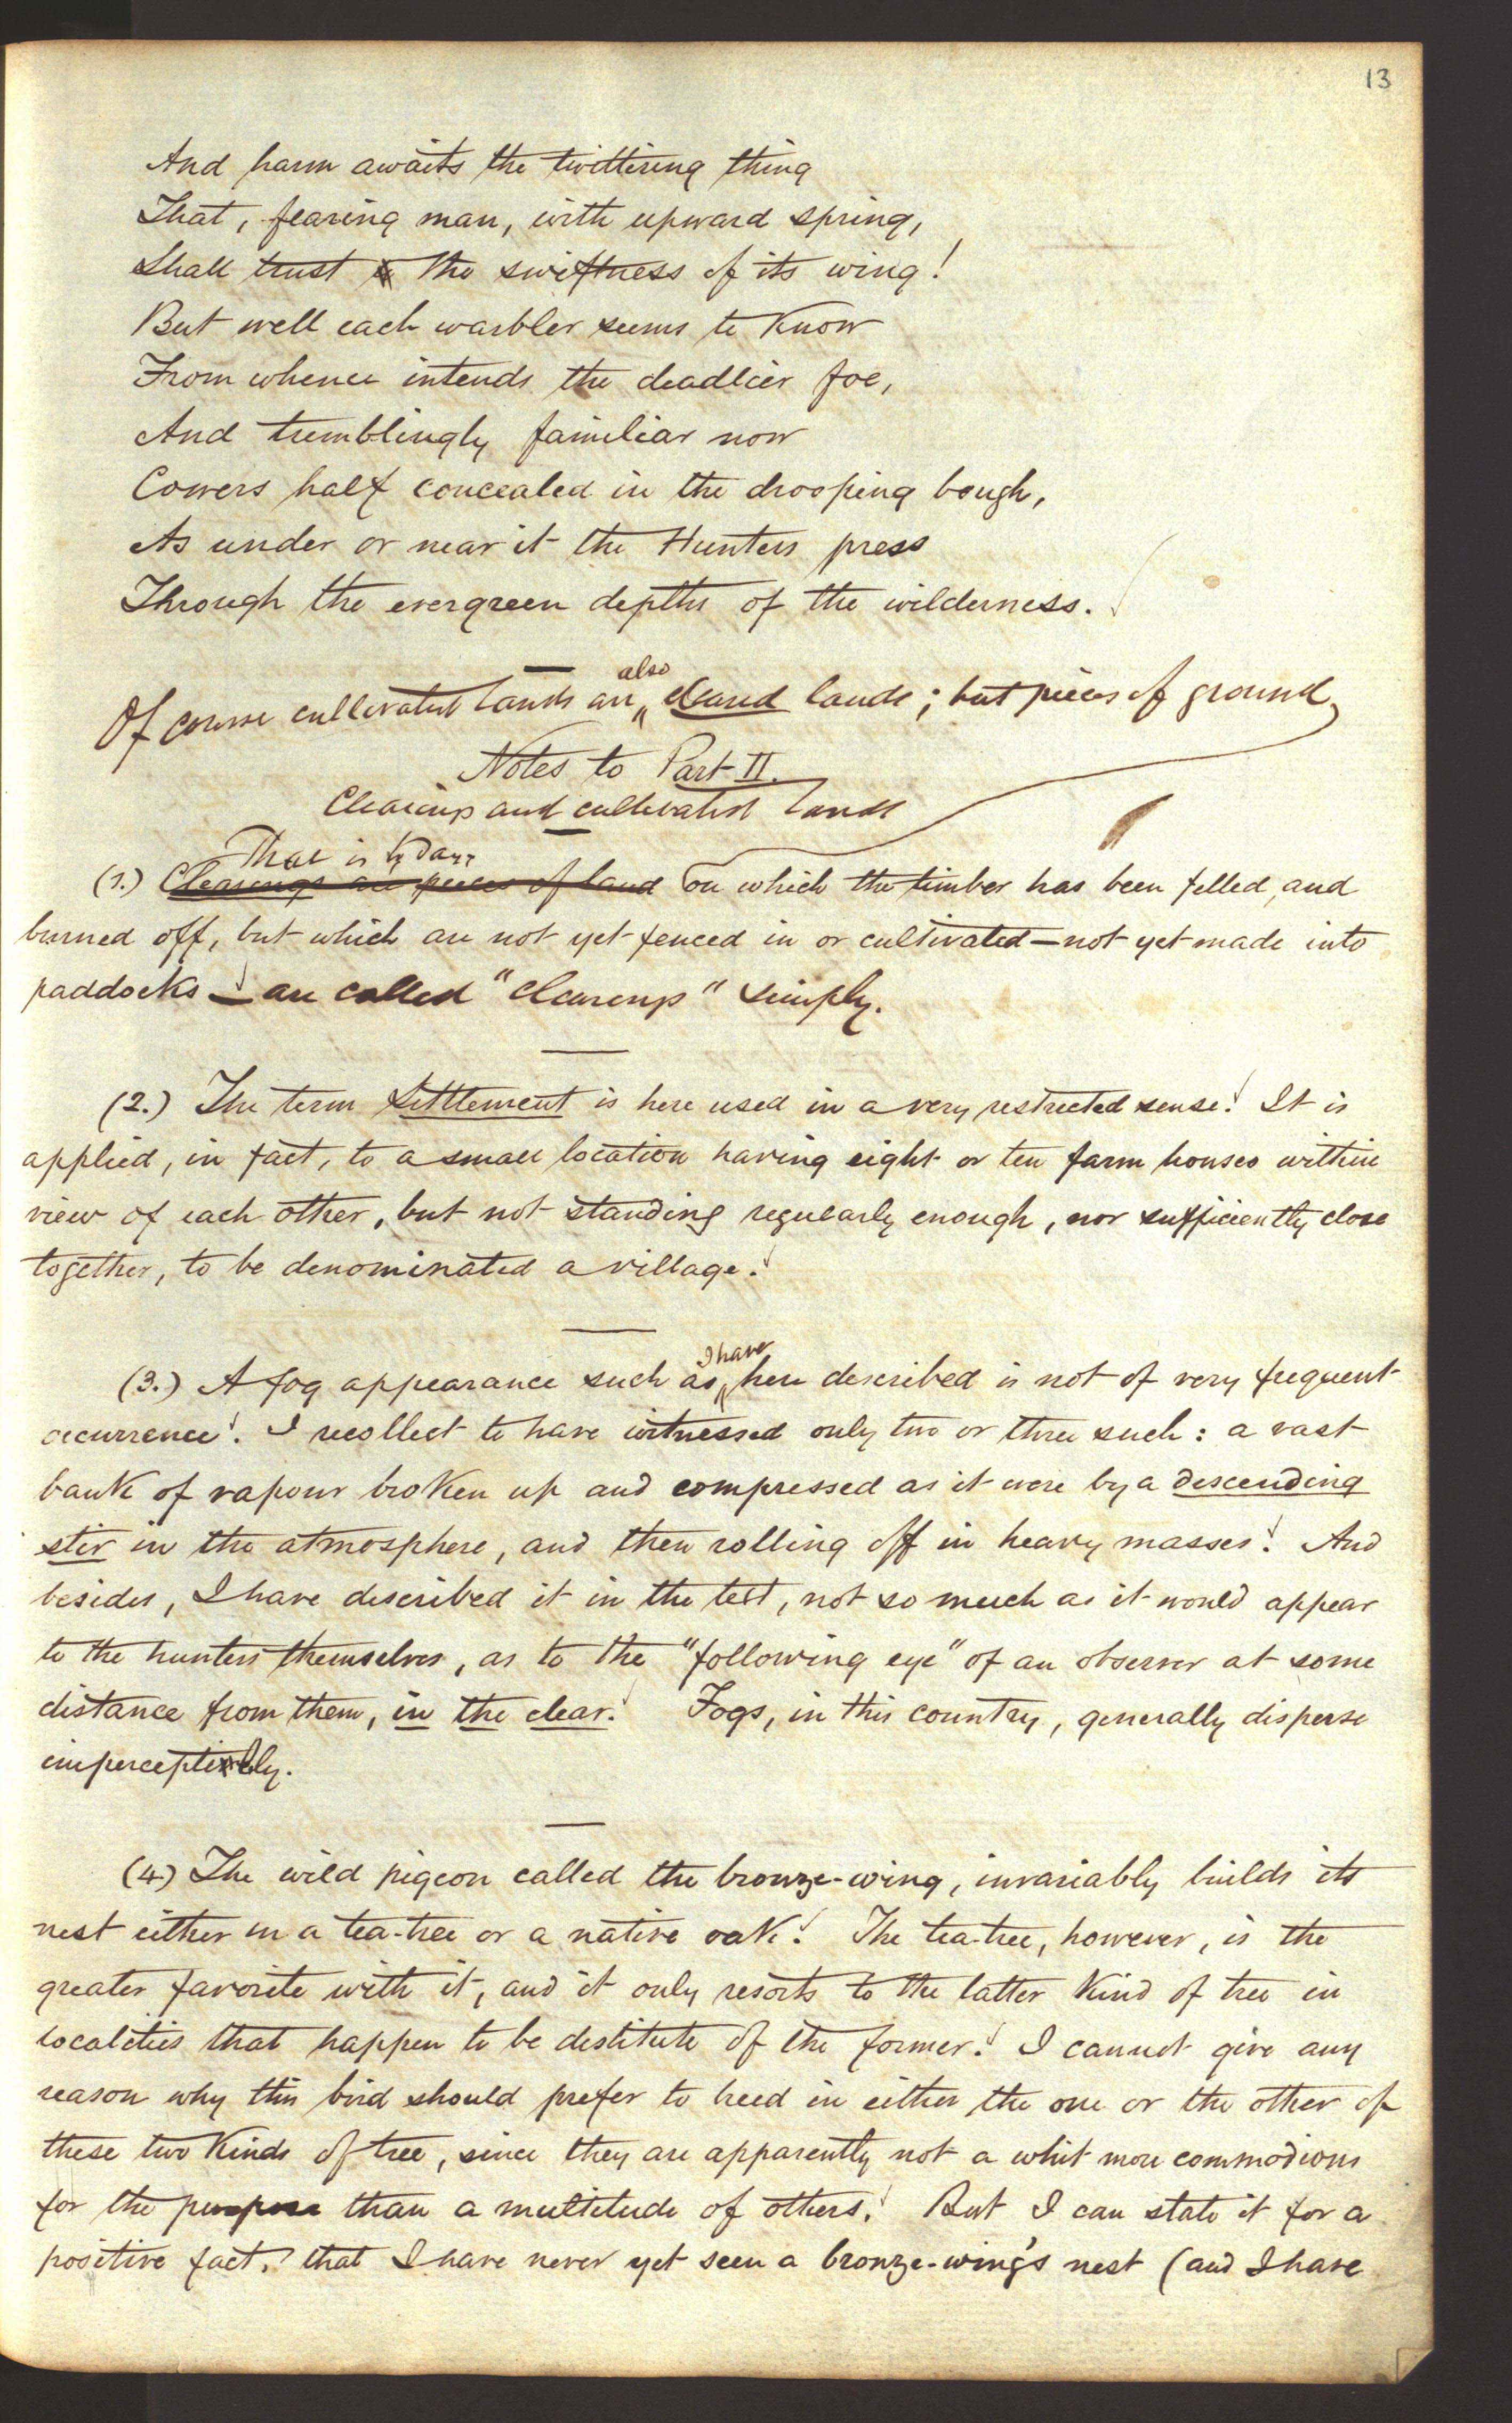 13
And harm awaits the twittering thing
That, fearing man, with upward spring,
Shall trust the swiftness of its wing!
But well each warbler seems to know
From whence intends the deadlier foe,
And tremblingly familiar now
Cowers half concealed in the drooping bough,
As under or near it the Hunters press
Through the evergreen depths of the wilderness.
also
Of course cultivated lands are cleared lands; but pieces of ground
Notes to Part II.
Clearings and cultivated lands
That is to say
(1.) Clearings are pieces of land on which the timber has been felled, and
burned off, but which are not yet fenced in or cultivated—not yet made into
paddocks — are called "clearings" simply.
(2.) The term Settlement is here used in a very restricted sense. It is
applied, in fact, to a small location having eight or ten farm houses within
view of each other, but not standing regularly enough, nor sufficiently close
together, to be denominated a village.
I have
(3.) A fog appearance such as here described is not of very frequent
occurrence. I recollect to have witnessed only two or three such: a vast
bank of vapour broken up and compressed as it were by a descending
stir in the atmosphere, and then rolling off in heavy masses. And
besides, I have described it in the text, not so much as it would appear
to the hunters themselves, as to the "following eye" of an observer at some
distance from them, in the clear. Fogs, in this country, generally disperse
imperceptibly.
(4.) The wild pigeon called the bronze-wing, invariably builds its
nest either in a tea-tree or a native oak. The tea-tree, however, is the
greater favorite with it, and it only resorts to the latter kind of tree in
localities that happen to be destitute of the former. I cannot give any
reason why this bird should prefer to breed in either the one or the other of
these two kinds of tree, since they are apparently not a whit more commodious
for the purpose than a multitude of others. But I can state it for a
positive fact, that I have never yet seen a bronze-wing's nest (and I have